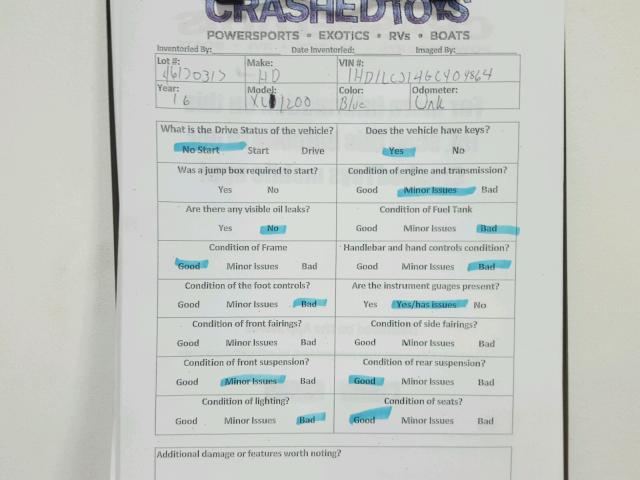 CRASHEDTOYS
POWERSPORTS • EXOTICS • RVs • BOATS
Inventoried By: Date Inventoried: Imaged By:
Lot #: Make: VIN #:
46170317 HD 1HD1LC314GC409864
Year: Model: Color: Odometer:
16 XL1200 Blue Unk
What is the Drive Status of the vehicle? Does the vehicle have keys?
No Start Start Drive Yes No
Was a jump box required to start? Condition of engine and transmission?
Yes No Good Minor Issues Bad
Are there any visible oil leaks? Condition of Fuel Tank
Yes No Good Minor Issues Bad
Condition of Frame Handlebar and hand controls condition?
Good Minor Issues Bad Good Minor Issues Bad
Condition of the foot controls? Are the instrument guages present?
Good Minor Issues Bad Yes Yes/has issues No
Condition of front fairings? Condition of side fairings?
Good Minor Issues Bad Good Minor Issues Bad
Condition of front suspension? Condition of rear suspension?
Good Minor Issues Bad Good Minor Issues Bad
Condition of lighting? Condition of seats?
Good Minor Issues Bad Good Minor Issues Bad
Additional damage or features worth noting?